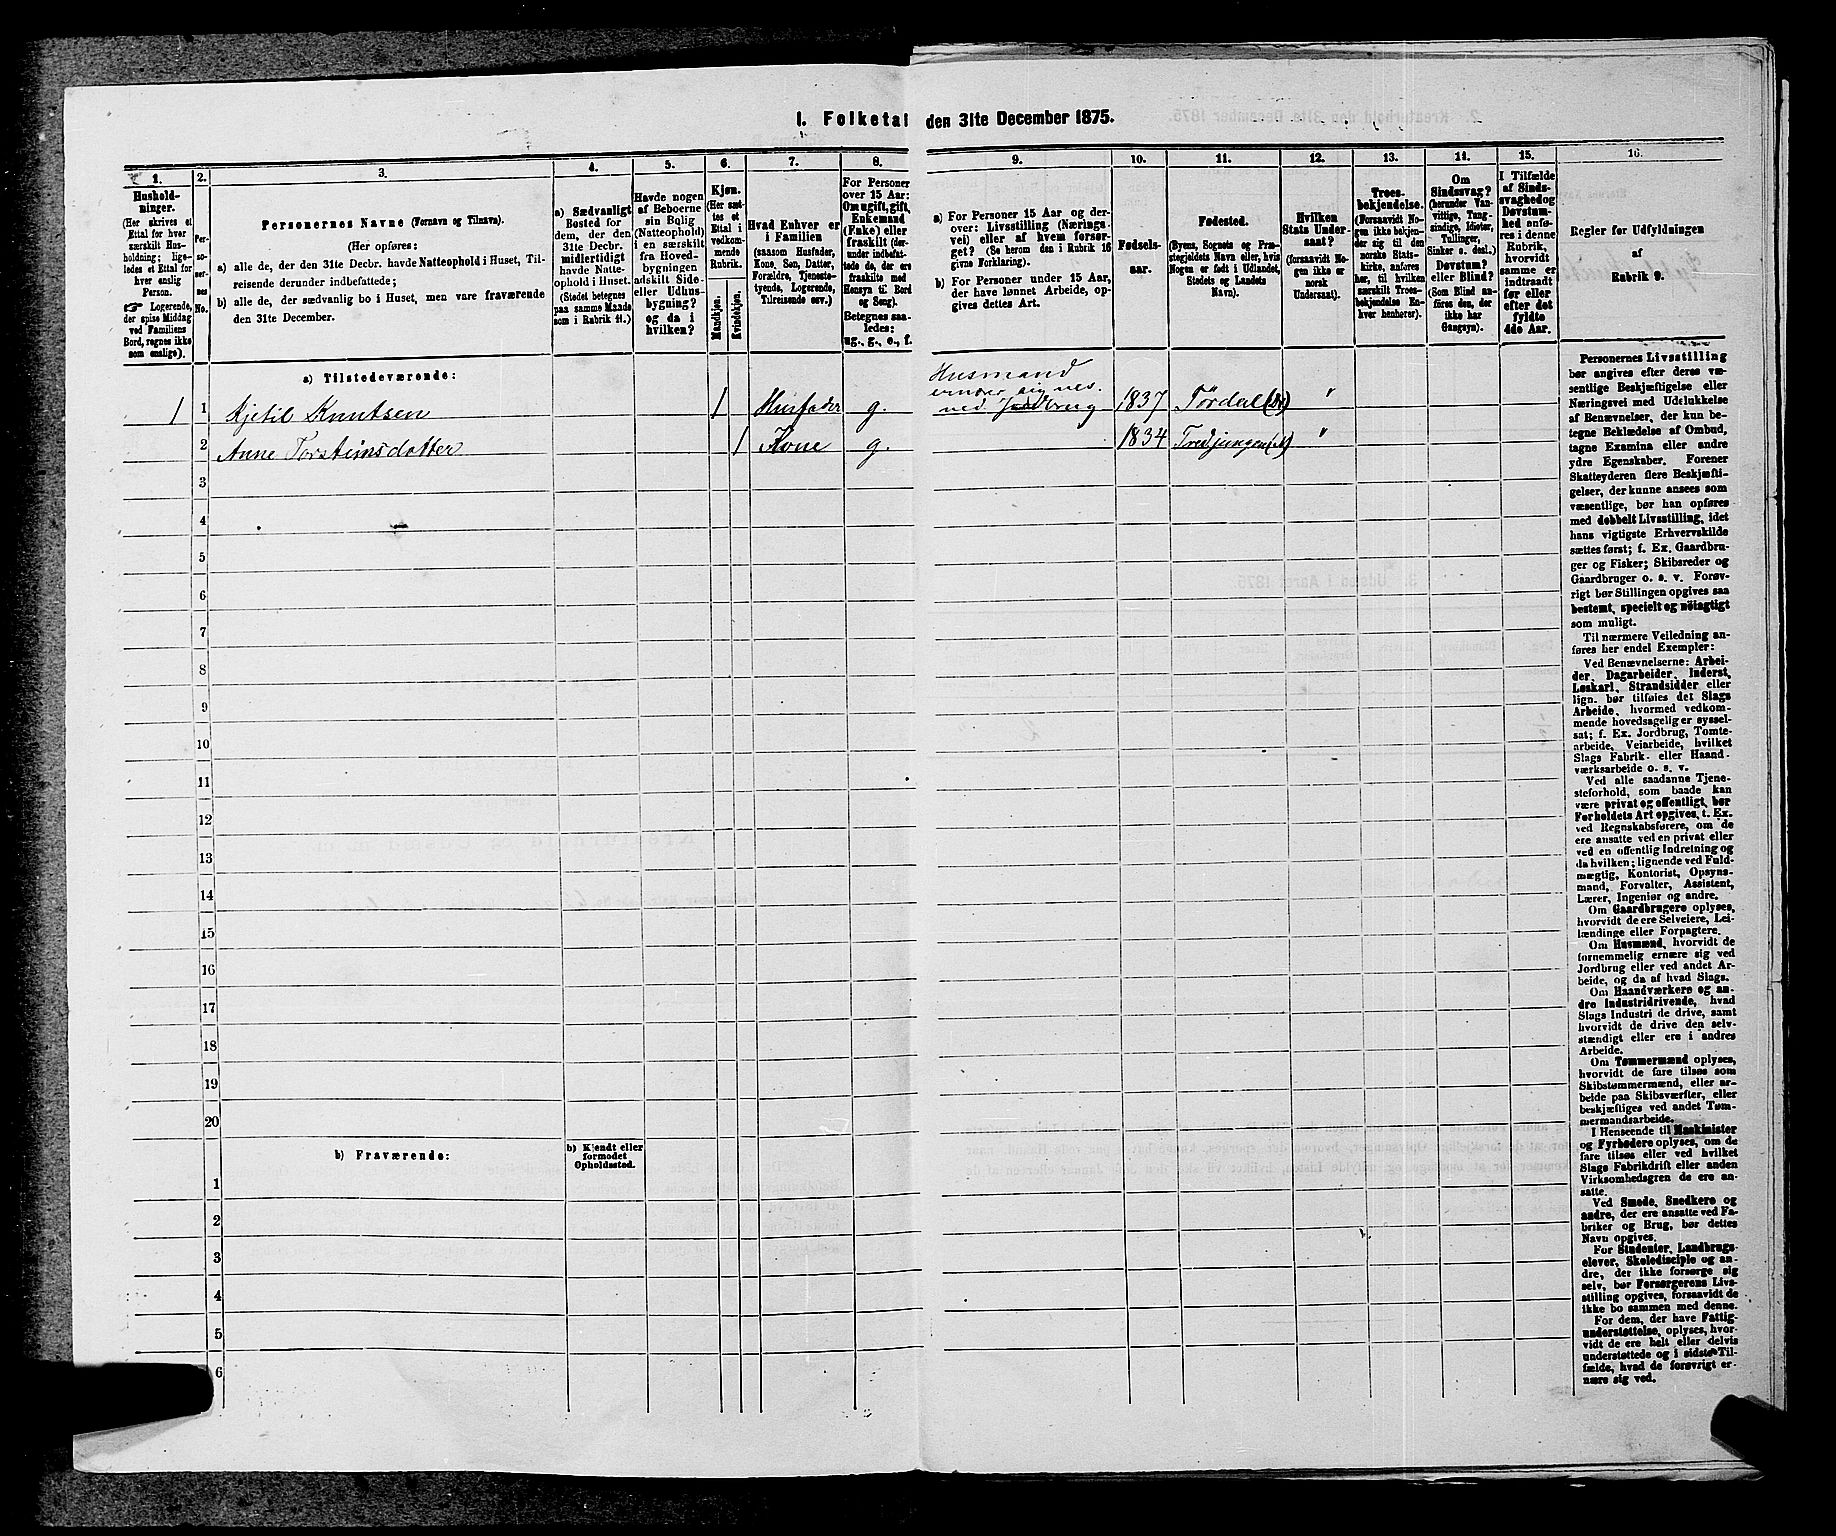 I. Folketal den 31te December 1875.
1. 2. 3. 4. 5. 6. 7. 8. 9. 10. 11. 12. 13. 14. 15. 16.
Hushold-
ninger.
(Her skrives et
Ettal for hver
særskilt Hus-
holdning; lige-
ledes et Ettal for
hver enslig
Person.
☞ Logerende,
der spise Middag
ved Familiens
Bord, regnes ikke
som enslige).
Per-
so-
ner-
nes
No.
Personernes Navne (Fornavn og Tilnavn).
(Her opføres:
a) alle de, der den 31te Decbr. havde Natteophold i Huset, Til-
reisende derunder indbefattede;
b) alle de, der sædvanlig bo i Huset, men vare fraværende
den 31te December.
a) Sædvanligt
Bosted for
dem, der den
31te Decbr.
midlertidigt
havde Natte-
ophold i Huset.
(Stedet betegnes
paa samme Maade
som i Rubrik 11.)
Havde nogen
af Beboerne
sin Bolig
(Natteophold)
i en særskilt
fra Hoved-
bygningen
adskilt Side-
eller Udhus-
bygning?
og da i
hvilken?
Kjøn.
(Her sæt-
tes et
Ettal i
vedkom-
mende
Rubrik.
Mandkjøn.
Kvindekjøn.
Hvad Enhver er
i Familien
(saasom Husfader,
Kone, Søn, Datter,
Forældre, Tjeneste-
tyende, Logerende,
Tilreisende osv.)
For Personer
over 15 Aar:
Om ugift, gift,
Enkemand
(Enke) eller
fraskilt (der-
under indbefat-
tede de, der ere
fraskilte med
Hensyn til Bord
og Seng).
Betegnes saa-
ledes:
ug., g., e., f.
a) For Personer 15 Aar og der-
over: Livsstilling (Nærings-
vei) eller af hvem forsør-
get? (Se herom den i Rubrik 16
givne Forklaring).
b) For Personer under 15 Aar,
der have lønnet Arbeide, op-
gives dettes Art.
Fødsels-
aar.
Fødested.
(Byens, Sognets og Præ-
stegjeldets Navn, eller, hvis
Nogen er født i Udlandet,
Stedets og Landets
Navn).
Hvilken
Stats Under-
saat?
(forsaavidt No-
gen ikke er
norsk
Undersaat).
Troes-
bekjendelse.
(Forsaavidt No-
gen ikke bekjen-
der sig til den
norske Stats-
kirke, anføres
her, til hvilken
særskilt Troes-
bekjendelse En-
hver henhører).
Om
Sindssvag?
(herunder Van-
vittige, Tung-
sindige, Idioter,
Tullinger,
Sinker o. desl.)
Døvstum?
eller Blind?
(Som Blind an-
føres den, der
ikke har
Gangsyn).
I Tilfælde
af Sinds-
svaghed og
Døvstum-
hed anfø-
res i denne
Rubrik,
hvorvidt
samme er
indtraadt
før eller
efter det
fyldte
4de Aar.
Regler for Udfyldningen
af
Rubrik 9.
a) Tilstedeværende:
1 1 Kjetil Knutsen 1 Husfader g. Husmand
ernærer sig ves.
ved Jordbrug 1837 Tørdal (St) "
2 Anne Torsteinsdatter 1 Kone g. 1834 "
3
4
5
6
7
8
9
10
11
12
13
14
15
16
17
18
19
20
b) Fraværende:
b) Kjendt eller
formodet
Opholdssted.
1
2
3
4
5
6
Personernes Livsstilling
bør angives efter deres væ-
sentlige Beskjæftigelse eller
Næringsvei med Udelukkelse
af Benævnelser, der kun be-
tegne Beklædelse af Ombud,
tagne Examina eller andre
ydre Egenskaber. Forener
Skatteyderen flere Beskjæfti-
gelser, der kunne ansees som
væsentlige, bør han opføres
med dobbelt Livsstilling, idet
hans vigtigste Erhvervskilde
sættes først; f. Ex. Gaardbru-
ger og Fisker; Skibsreder og
Gaardbruger o. s. v. Forøv-
rigt bør Stillingen opgives saa
bestemt, specielt og nöiagtigt
som muligt.
Til nærmere Veiledning an-
føres her endel Exempler:
Ved Benævnelserne: Arbei-
der, Dagarbeider, Inderst,
Løskarl, Strandsidder eller
lign. bør tilføies det Slags
Arbeide, hvormed vedkom-
mende hovedsagelig er syssel-
sat; f. Ex. Jordbrug, Tomte-
arbeide, Veiarbeide, hvilket
Slags Fabrik- eller Haand-
værksarbeide o. s. v.
Ved alle saadanne Tjene-
steforhold, som baade kan
være privat og offentligt, bør
Forholdets Art opgives, t. Ex.
ved Regnskabsførere, om de
ere ansatte ved en privat eller
ved en offentlig Indretning og
da hvilken; lignende ved Fuld-
mægtig, Kontorist, Opsyns-
mand, Forvalter, Assistent,
Lærer, Ingeniør og andre.
Om Gaardbrugere oplyses,
hvorvidt de ere Selveiere, Lei-
lændinge eller Forpagtere.
Om Husmænd, hvorvidt de
fornemmelig ernære sig ved
Jordbrug eller ved andet Ar-
beide, og da af hvad Slags.
Om Haandværkere og an-
dre Industridrivende, hvad
Slags Industri de drive, samt
hvorvidt de drive den selv-
stændigt eller ere i andres
Arbeide.
Om Tømmermænd oplyses,
hvorvidt de fare tilsøs som
Skibstømmermænd, eller ar-
beide paa Skibsværfter, eller
beskjæftiges ved andet Tøm-
mermandsarbeide.
I Henseende til Maskinister
og Fyrbødere oplyses, om de
fare tilsøs eller ved hvilket
Slags Fabrikdrift eller anden
Virksomhedsgren de ere an-
satte.
Ved Smede, Snedkere og
andre, der ere ansatte ved Fa-
briker og Brug, bør dettes
Navn opgives.
For Studenter, Landbrugs-
elever, Skoledisciple og an-
dre, der ikke forsørge sig
selv, bør Forsørgerens Livs-
stilling opgives, forsaavidt de
ikke bo sammen med denne.
For dem, der have Fattig-
understøttelse, oplyses, hvor-
vidt de ere helt eller delvis
understøttede og i sidste Til-
fælde, hvad de forøvrigt er-
nære sig ved.